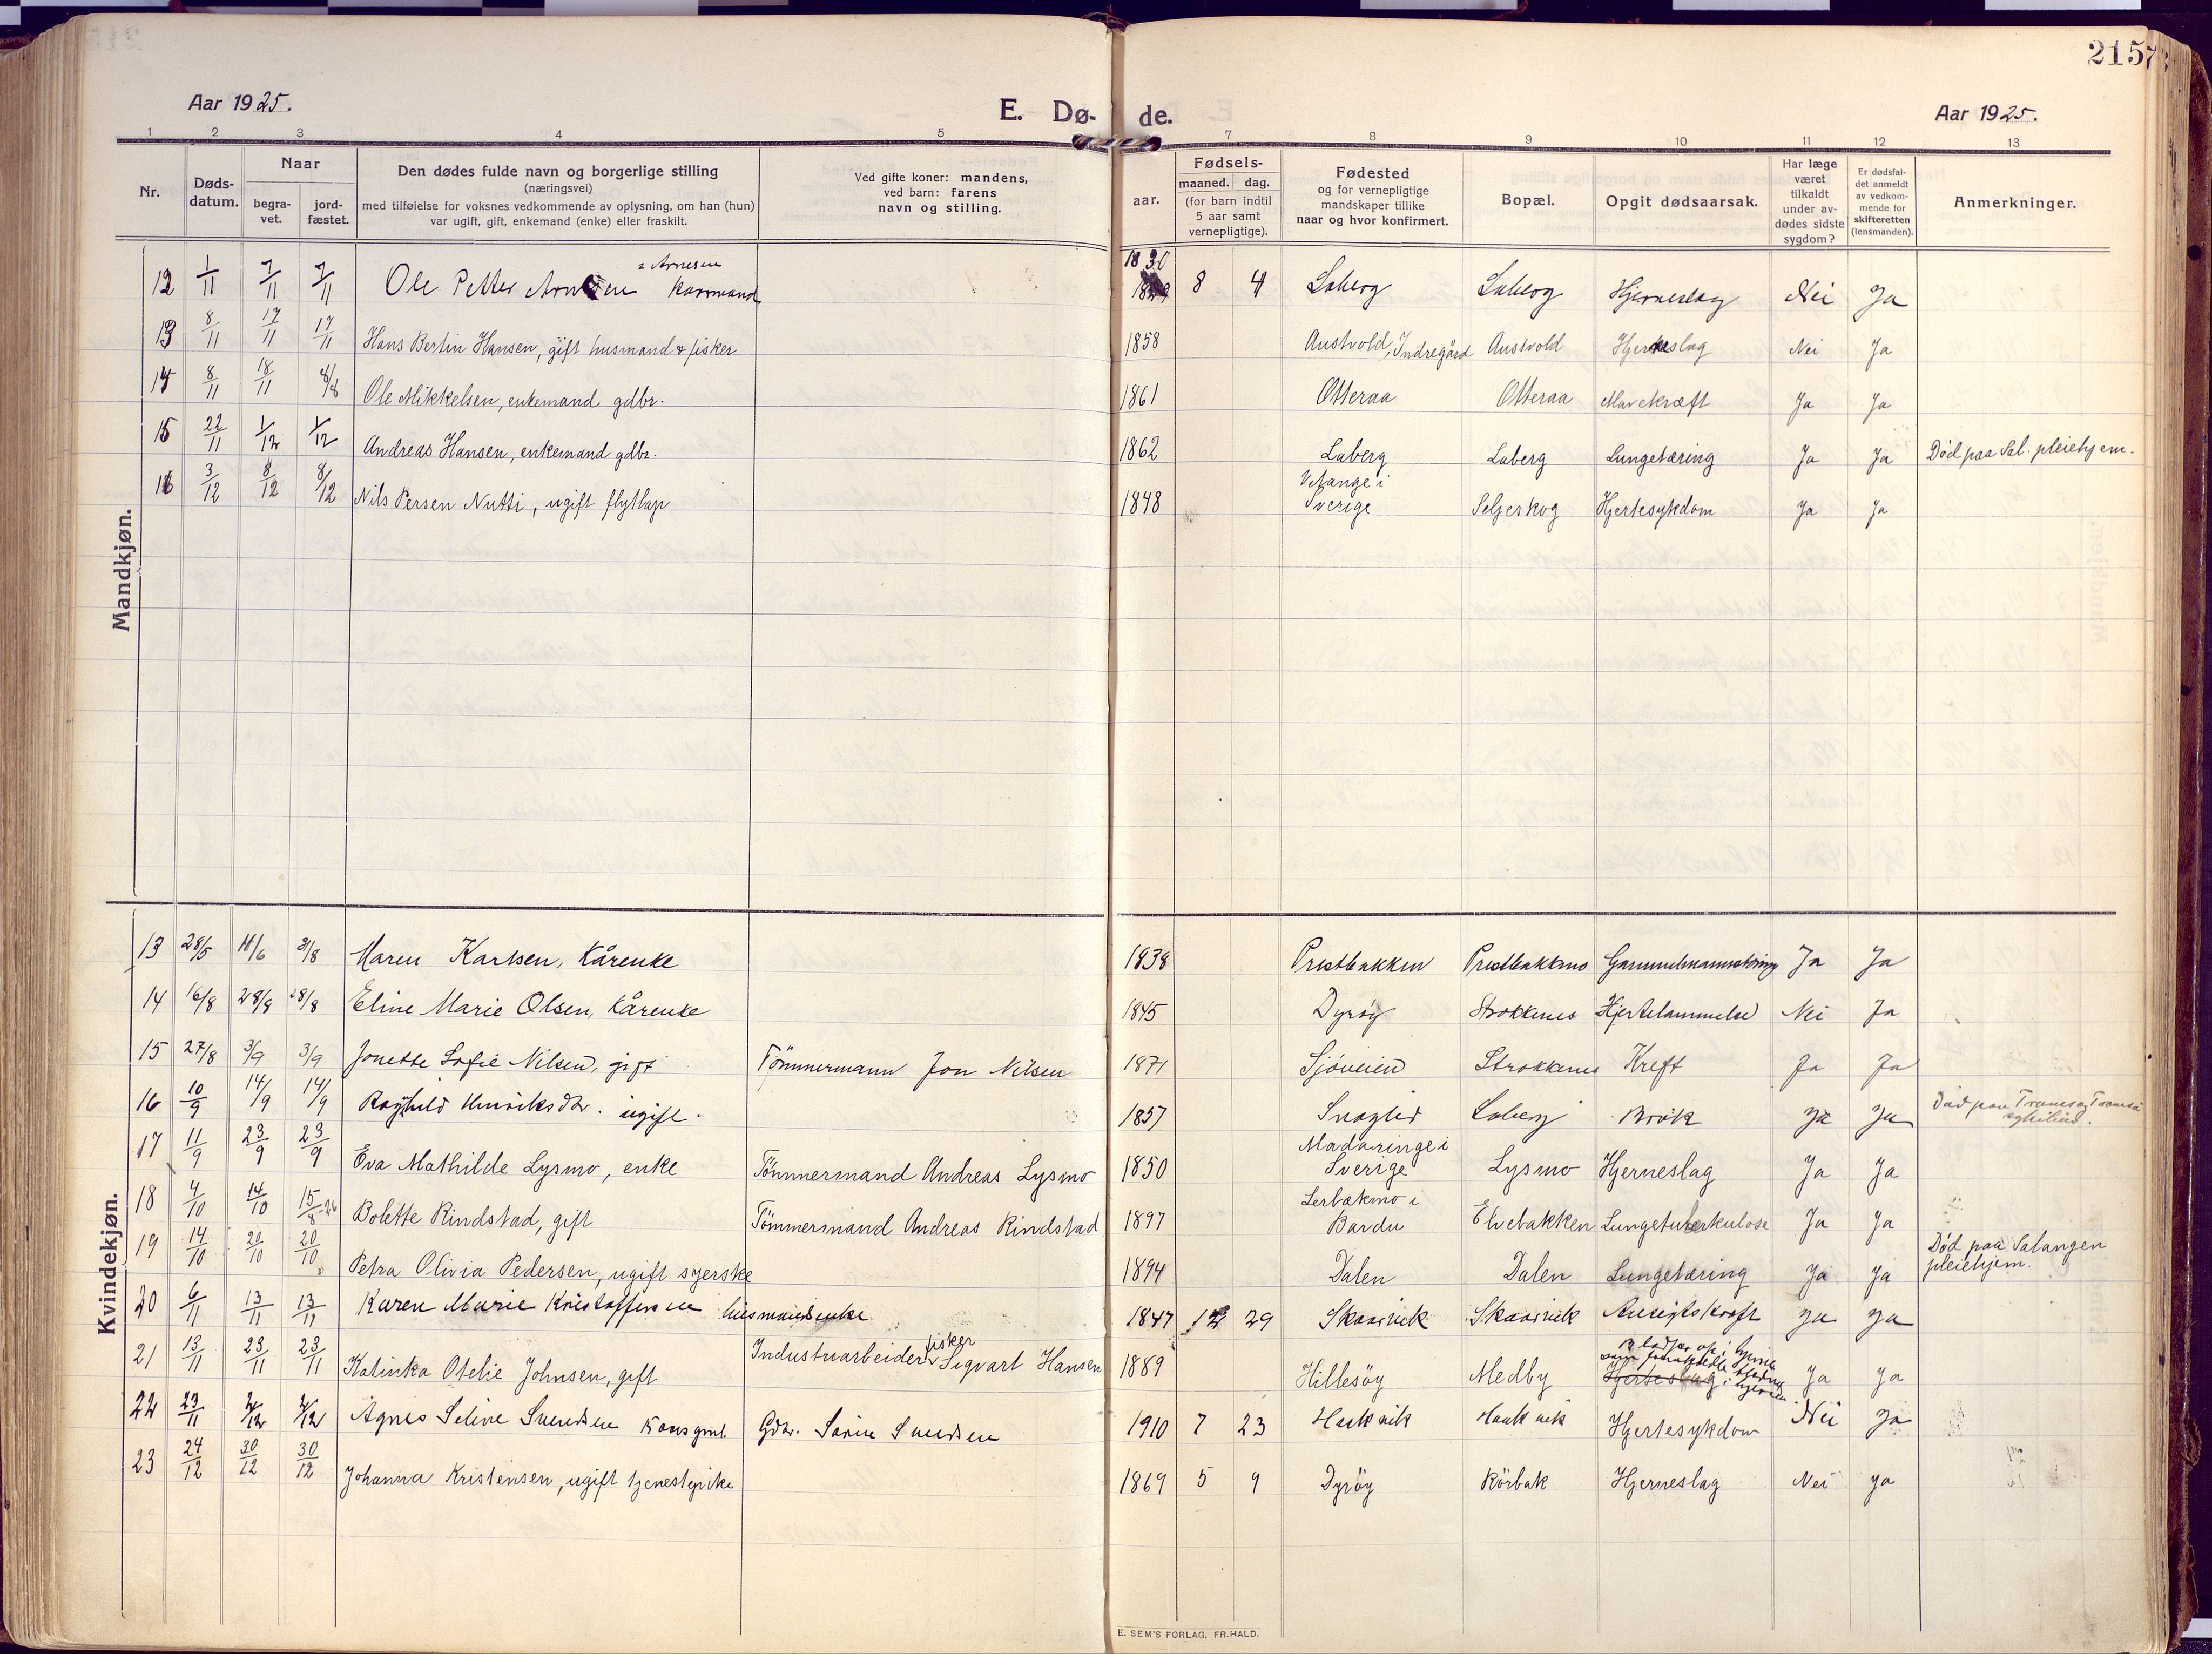 215
Aar 1925.
E. Dø-
de.
Aar 1925.
1 2 3 4 5 7 8 9 10 11 12 13
Nr.
Døds-
datum.
Naar
begra-
vet.
jord-
fæstet.
Den dødes fulde navn og borgerlige stilling
(næringsvei)
med tilføielse for voksnes vedkommende av oplysning, om han (hun)
var ugift, gift, enkemand (enke) eller fraskilt.
Ved gifte koner: mandens,
ved barn: farens
navn og stilling.
Fødsels-
aar.
maaned. dag.
(for barn indtil
5 aar samt
vernepligtige).
Fødested
og for vernepligtige
mandskaper tillike
naar og hvor konfirmert.
Bopæl.
Opgit dødsaarsak.
Har læge
været
tilkaldt
under av-
dødes sidste
sygdom?
Er dødsfal-
det anmeldt
av vedkom-
mende for
skifteretten
(lensmanden).
Anmerkninger.
Mandkjøn.
12 1/11 7/11 7/11 Ole Petter Arnesen Kaarmand 1830 8 4 Laberg Laberg Hjerneslag Nei Ja
13 8/11 17/11 17/11 Hans Bertin Hansen, gift husmand & fisker 1858 Austvold, Indregård Austvold Hjerneslag Nei Ja
14 8/11 18/11 Ole Mikkelsen, enkemand gdbr. 1861 Otteraa Otteraa Mavekræft Ja Ja
15 22/11 1/12 1/12 Andreas Hansen, enkemand gdbr. 1862 Laberg Laberg Lungetæring Ja Ja Død paa Sal. pleiehjem.
16 3/12 8/12 8/12 Nils Persen Nutti, ugift flytlap 1848 Vitange i
Sverige Seljeskog Hjertesykdom Ja Ja
Kvindekjøn.
13 28/5 11/6 31/8 Maren Karlsen, Kårenke 1838 Prestbakken Prestbakkmo Ja Ja
14 16/8 28/8 28/8 Eline Marie Olsen, Kårenke 1845 Dyrøy Strokkenes Hjertelammelse Nei Ja
15 27/8 3/9 3/9 Jonette Sofie Nilsen, gift Tömmermann Jon Nilsen 1871 Sjöveien Strokkenes Kreft Ja Ja
16 10/9 14/9 14/9 Raghild Henriksdtr. ugift. 1857 Laberg Brok Ja Ja Död paa Tromsø
17 11/9 23/9 23/9 Eva Mathilde Lysmo, enke Tömmermand Andreas Lysmo 1850 Madaringe i
Sverige Lysmo Hjerneslag Ja Ja
18 4/10 14/10 15/8 26 Bolette Rindstad, gift Tömmermand Andreas Rindstad 1897 Lerbækmo i
Bardu Elvebakken Lungetuberkulose Ja Ja
19 14/10 20/10 20/10 Petra Olivia Pedersen, ugift syerske 1894 Dalen Dalen Lungetæring Ja Ja Død paa Salangen
pleiehjem.
20 6/11 13/11 13/11 Karen Marie Kristoffersen husmandsenke 1847 12 29 Skaarvik Skaarvik Ansigtskræft Ja Ja
21 13/11 23/11 23/11 Katinka Otelie Johnsen, gift Industriarbeider fisker Sigvart Hansen 1889 Hillesöy Medby Hjerteslag Ja Ja
22 23/11 2/12 2/12 Agnes Seline Svendsen 15 aars gml. Gdbr. Sören Svendsen 1910 7 23 Haakvik Haakvik Hjertesykdom Nei Ja
23 24/12 30/12 30/12 Johanna Kristensen, ugift tjenestepike 1869 5 9 Dyröy Rörbak Hjerneslag Nei Ja
E. SEM'S FORLAG, FR.HALD.